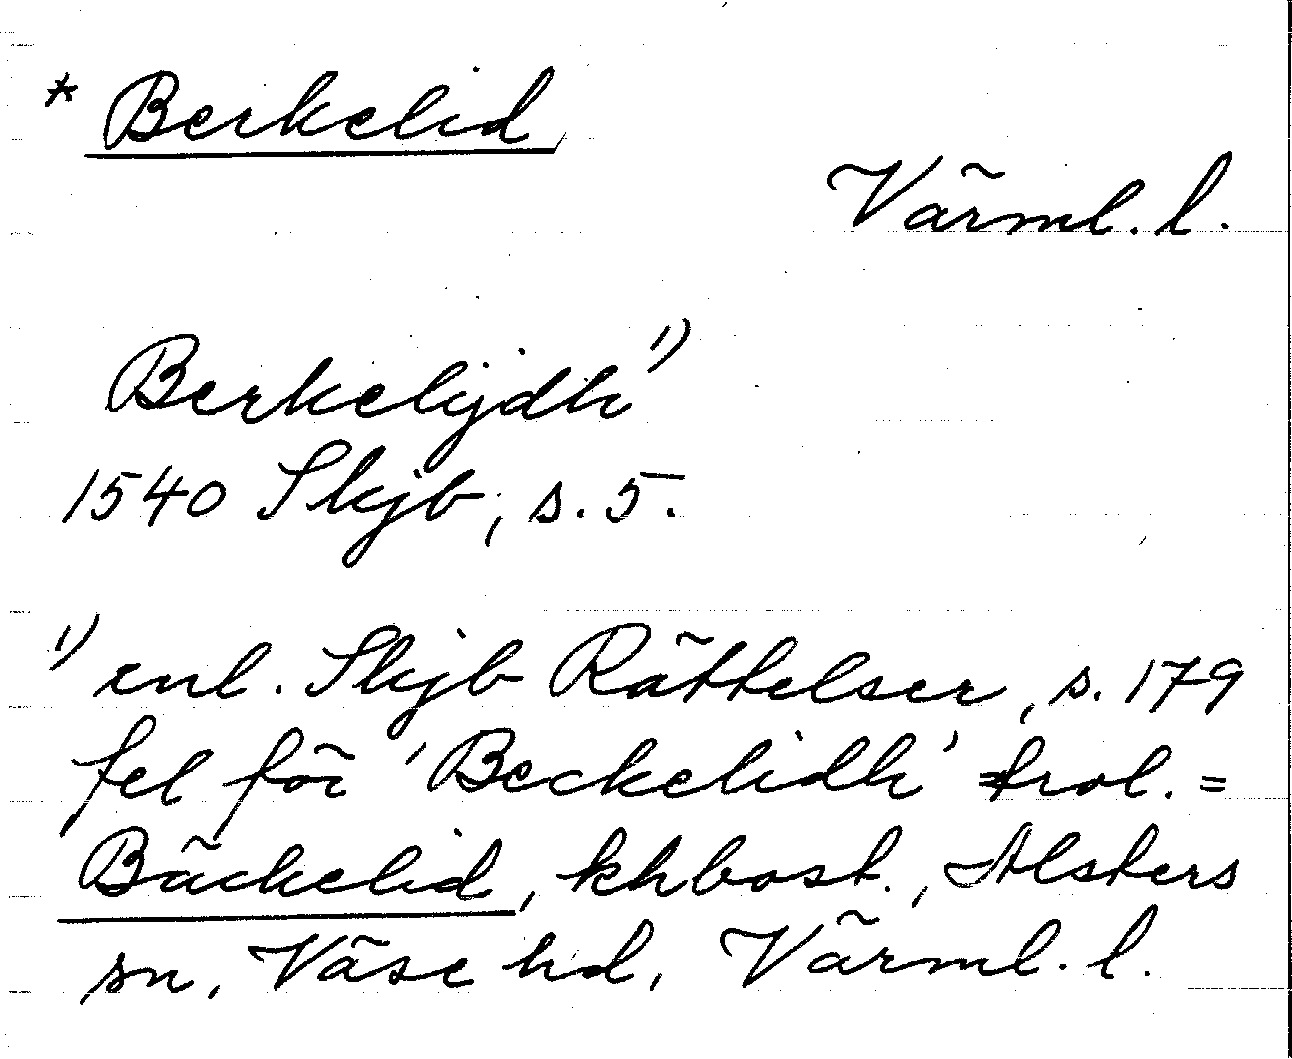 * Berkelid
Värml. l.
Berkelijdh 1)
1540 Skjb, s. 5.
1) enl. Skjb Rättelser, s. 179
fel för 'Beckelidh' trol. =
Bäckelid, khbost., Alsters
sn, Väse hd, Värml. l.